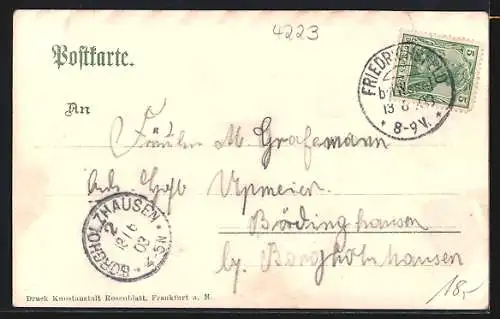 4223
Postkarte.
An
Fräulein M. Grafemann
Upmeier
Bördinghausen
by. Borgholzhausen
5 5
8-9V.
BORGHOLZHAUSEN
2
12/6
03
4-5N
Druck Kunstanstalt Rosenblatt, Frankfurt a. M.
18,-